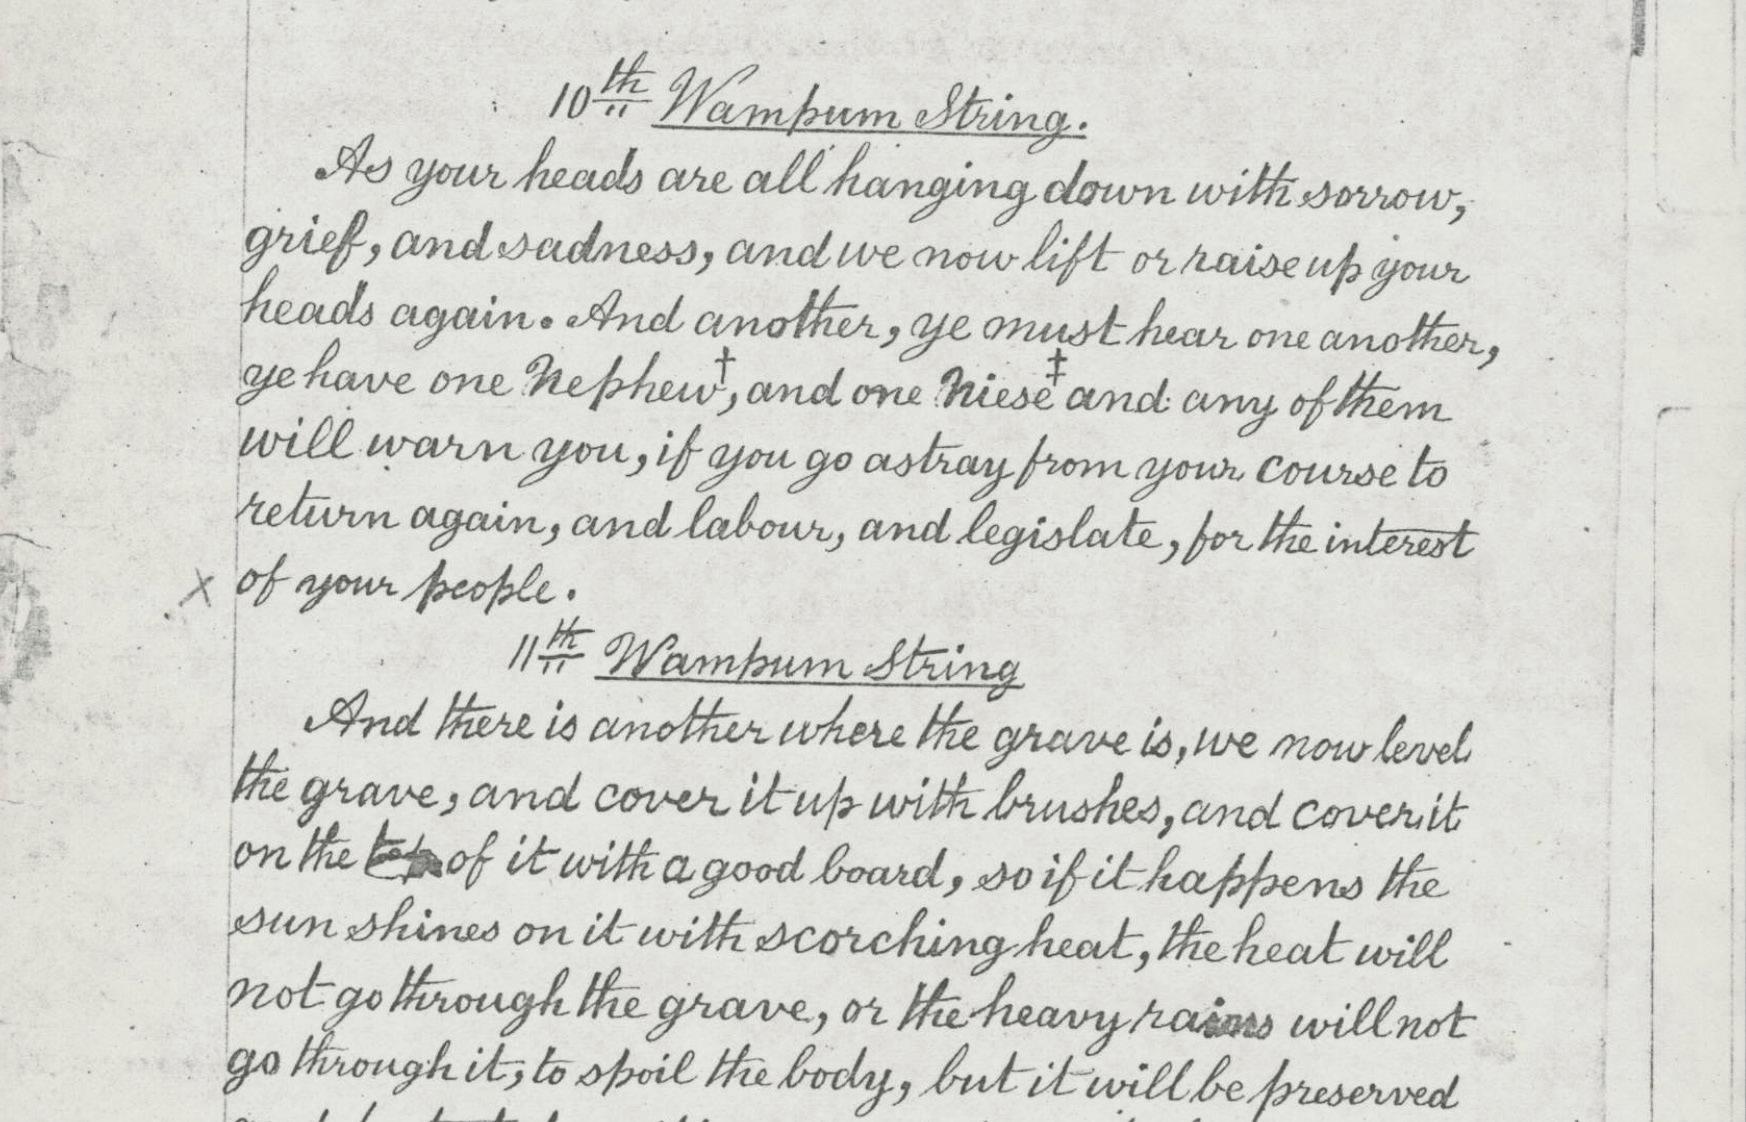 10th Wampum String.
As your heads are all hanging down with sorrow,
grief, and sadness, and we now lift or raise up your
heads again. And another, ye must hear one another,
ye have one Nephew†, and one Niese‡ and any of them
will warn you, if you go astray from your course to
return again, and labour, and legislate, for the interest
x of your people.
11th Wampum String
And there is another where the grave is, we now level
the grave, and cover it up with brushes, and cover it
on the top of it with a good board, so if it happens the
sun shines on it with scorching heat, the heat will
not go through the grave, or the heavy rains will not
go through it, to spoil the body, but it will be preserved